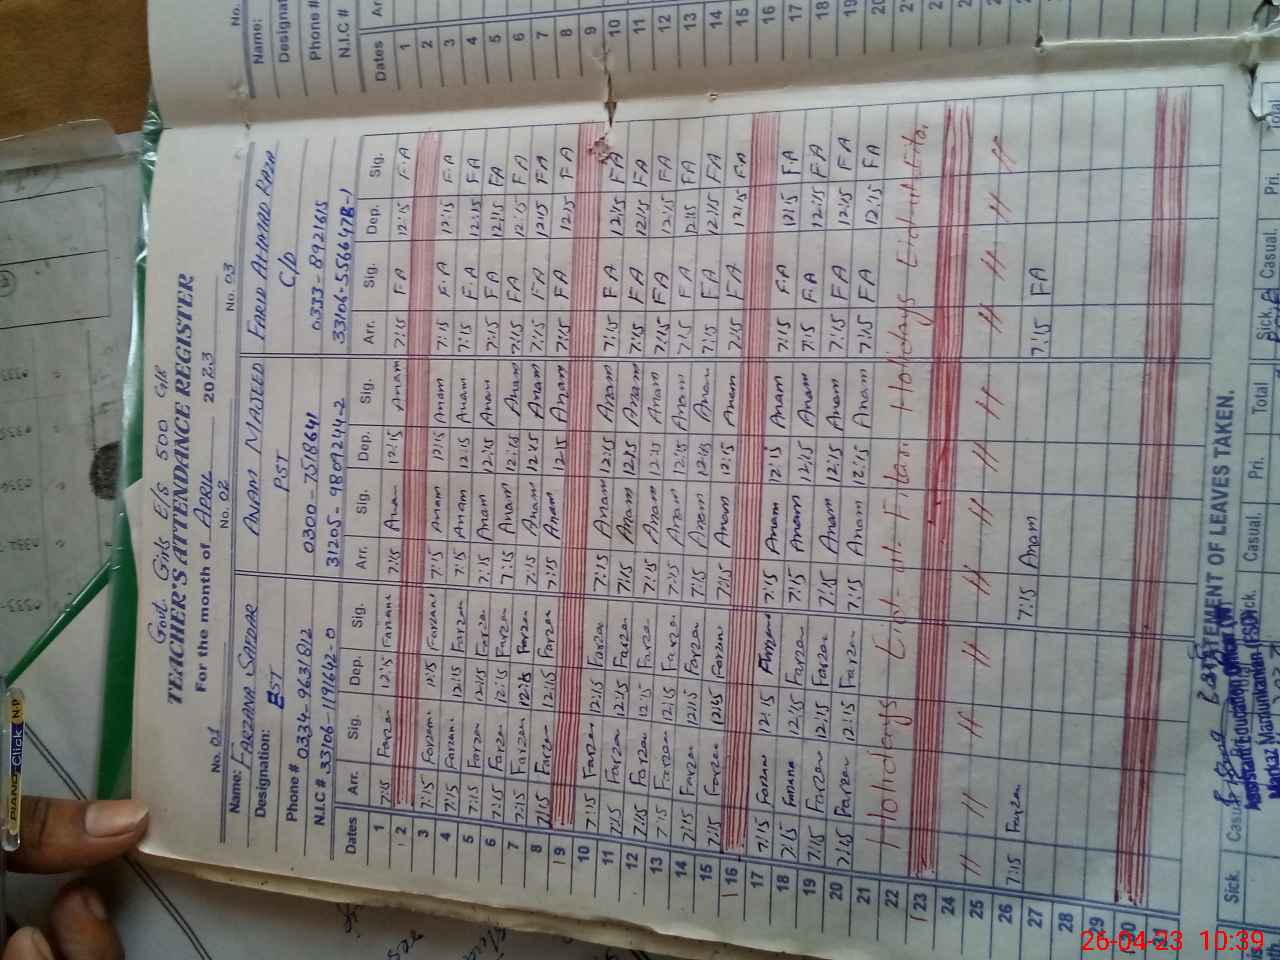 Govt. Girls E/S 500 G/B
TEACHER'S ATTENDANCE REGISTER
For the month of APRIL 2023
No. 01 No. 02 No. 03
Name: FARZANA SAFDAR ANAM MAJEED FARID AHMAD RAZA
Designation: EST PST C/D
Phone # 0334-9631812 0300-7518641 0333-8921615
N.I.C # 33106-1191642-0 31205-9809244-2 33106-5566478-1
Dates Arr. Sig. Dep. Sig. Arr. Sig. Dep. Sig. Arr. Sig. Dep. Sig.
1 7:15 Farzan 12:15 Farzana 7:15 Anam 12:15 Anam 7:15 FA 12:15 F.A
2
3 7:15 Farzana 12:15 Farzana 7:15 Anam 12:15 Anam 7:15 F.A 12:15 F.A
4 7:15 Farzana 12:15 Farzan 7:15 Anam 12:15 Anam 7:15 F.A 12:15 FA
5 7:15 Farzan 12:15 Farzan 7:15 Anam 12:15 Anam 7:15 FA 12:15 FA
6 7:15 Farzan 12:15 Farzan 7:15 Anam 12:15 Anam 7:15 FA 12:15 FA
7 7:15 Farzan 12:15 Farzan 7:15 Anam 12:15 Anam 7:15 FA 12:15 FA
8 7:15 Farzan 12:15 Farzan 7:15 Anam 12:15 Anam 7:15 FA 12:15 FA
9
10 7:15 Farzan 12:15 Farzan 7:15 Anam 12:15 Anam 7:15 FA 12:15 FA
11 7:15 Farzan 12:15 Farzan 7:15 Anam 12:15 Anam 7:15 FA 12:15 FA
12 7:15 Farzan 12:15 Farzan 7:15 Anam 12:15 Anam 7:15 FA 12:15 FA
13 7:15 Farzan 12:15 Farzan 7:15 Anam 12:15 Anam 7:15 FA 12:15 FA
14 7:15 Farzan 12:15 Farzan 7:15 Anam 12:15 Anam 7:15 FA 12:15 FA
15 7:15 Farzan 12:15 Farzan 7:15 Anam 12:15 Anam 7:15 FA 12:15 FA
16
17 7:15 Farzan 12:15 Farzan 7:15 Anam 12:15 Anam 7:15 FA 12:15 FA
18 7:15 Farzana 12:15 Farzan 7:15 Anam 12:15 Anam 7:15 FA 12:15 FA
19 7:15 Farzan 12:15 Farzan 7:15 Anam 12:15 Anam 7:15 FA 12:15 FA
20 7:15 Farzan 12:15 Farzan 7:15 Anam 12:15 Anam 7:15 FA 12:15 FA
21
22 Holidays Eid-ul-Fitar. Holidays Eid-ul-Fitr.
23
24 〃 〃 〃 〃 〃 〃 〃 〃
25
26 7:15 Farzan 7:15 Anam 7:15 FA
27
28
29
30
31
STATEMENT OF LEAVES TAKEN.
Sick. Casual. Sick. Casual. Pri. Total Sick. Casual. Pri. Total
Assistant Education Officer (W)
Markaz Mamunkanjan (FSD)
No.
Name:
Designat
Phone #
N.I.C #
Dates Ar
1
2
3
4
5
6
7
8
9
10
11
12
13
14
15
16
17
18
19
20
PIANO CLICK N.P
26-04-23 10:39